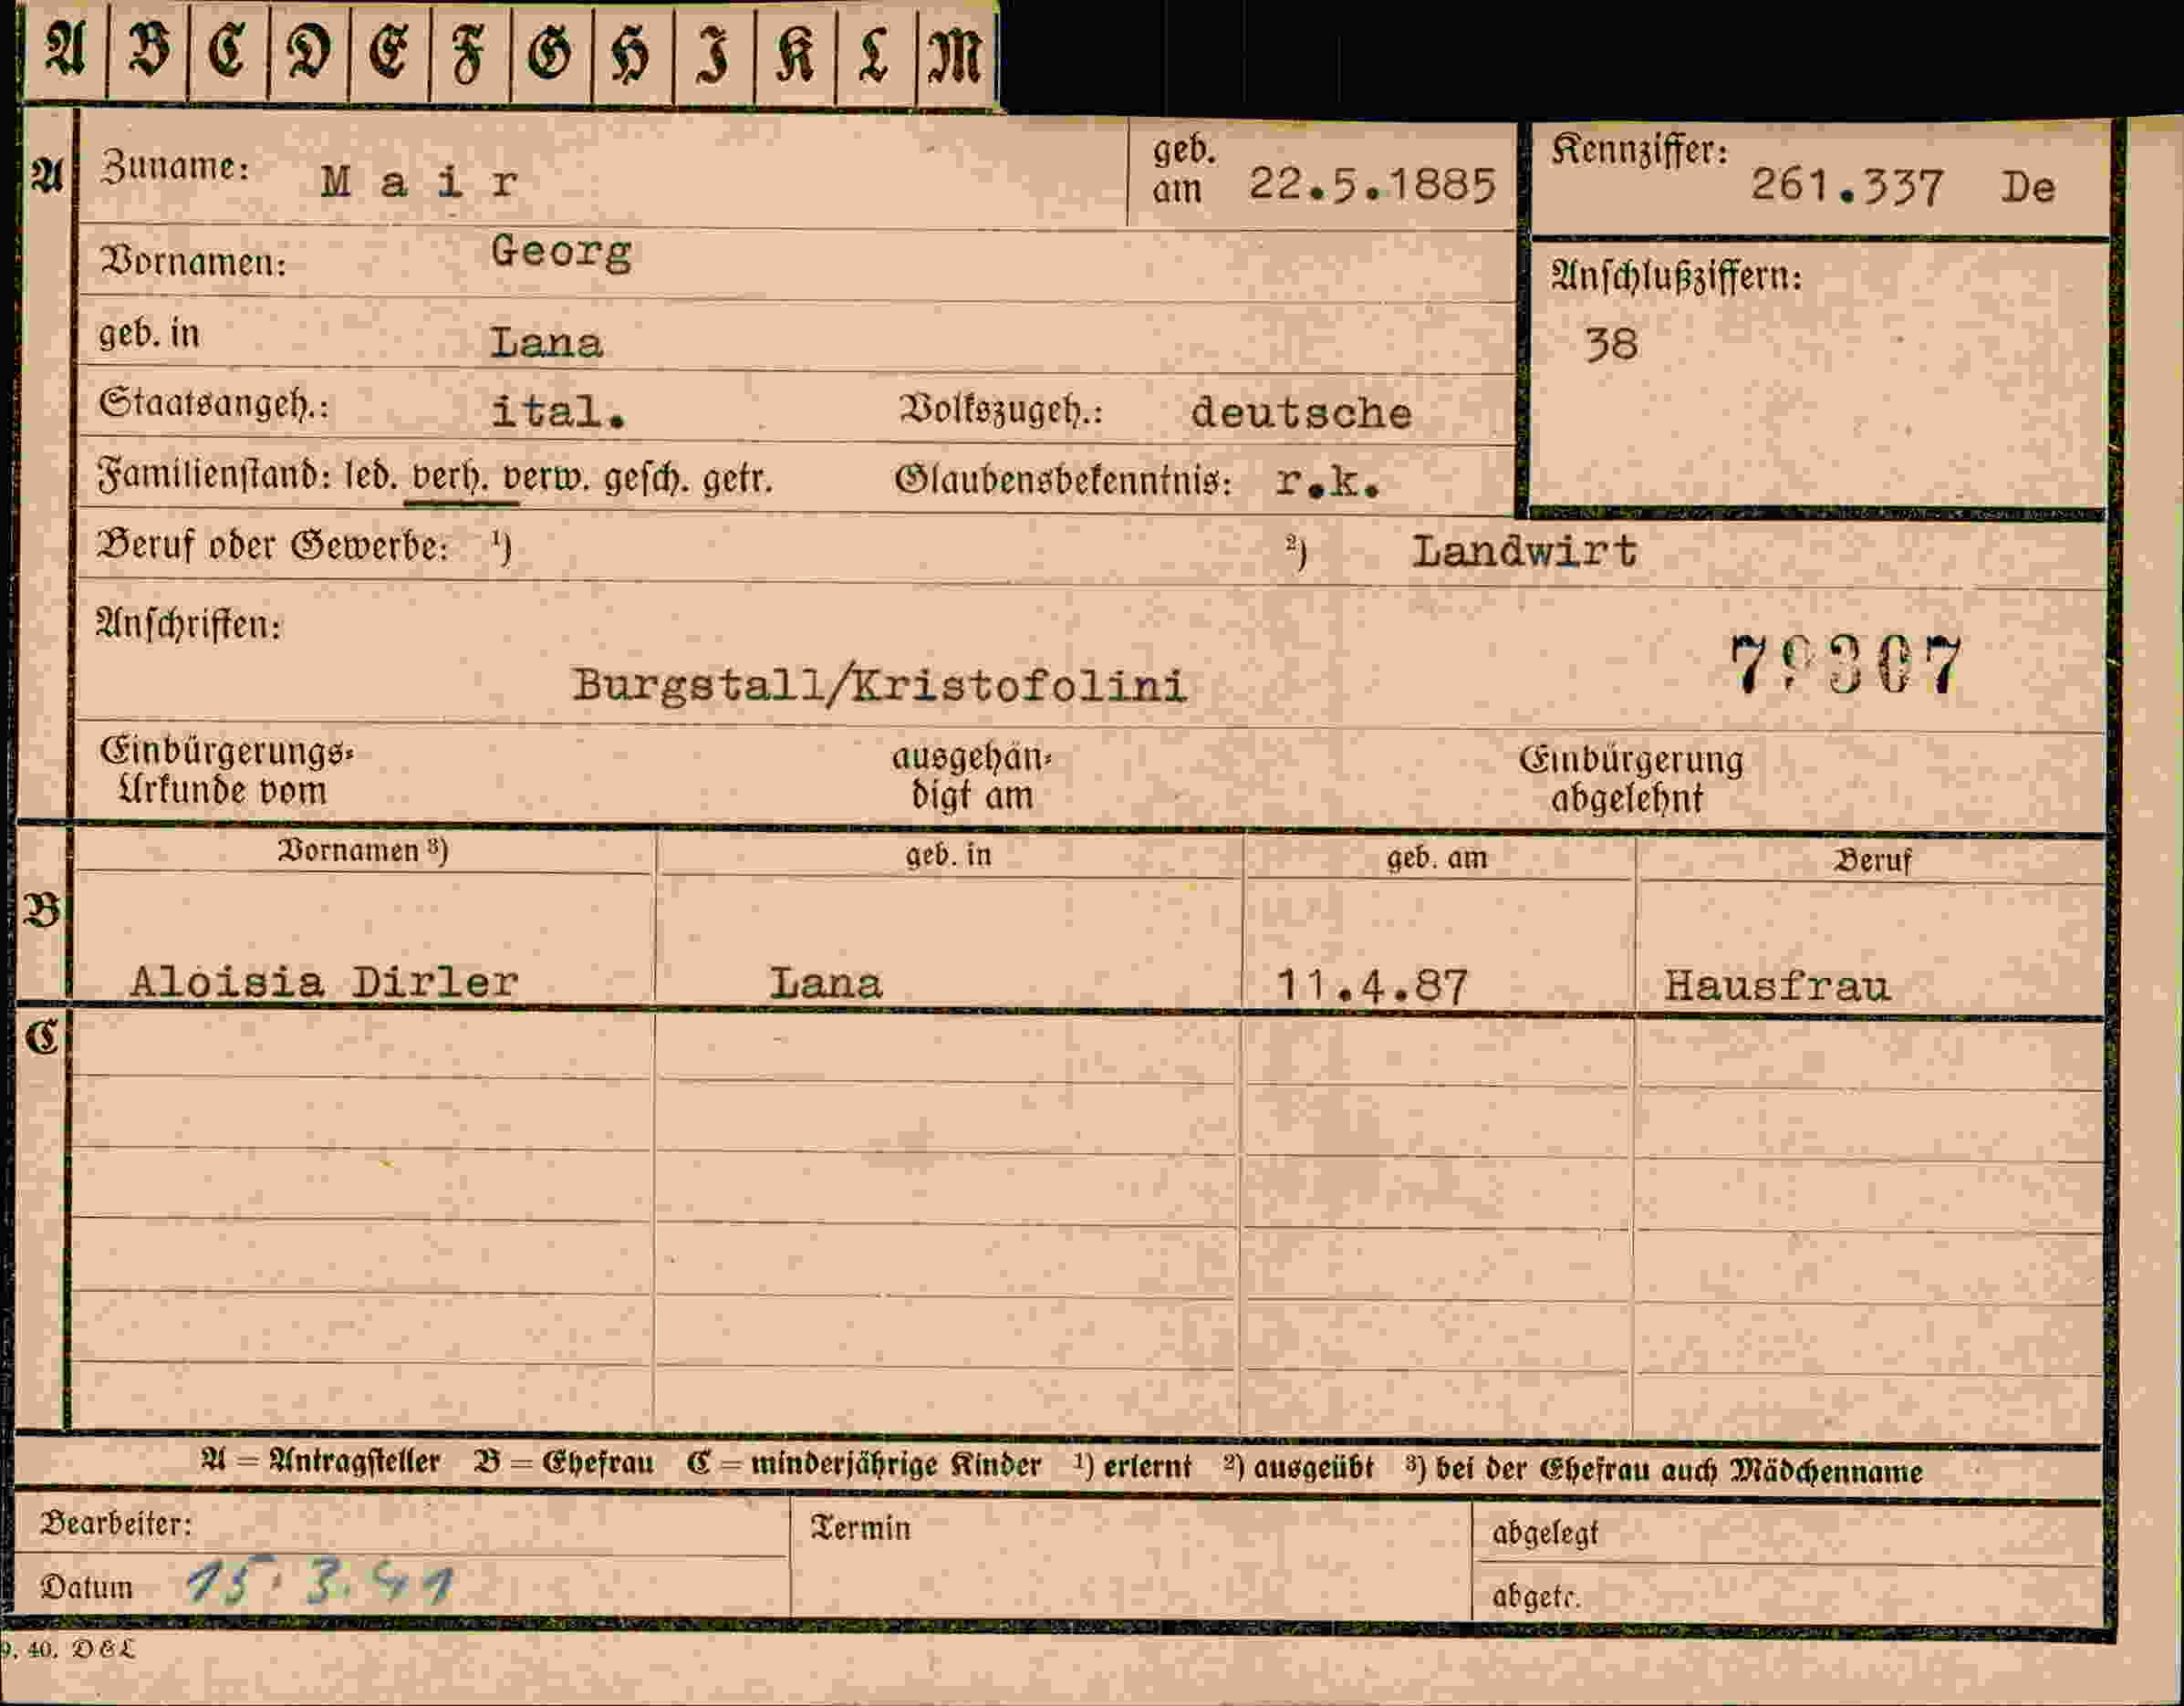 A B C D E F G H I K L M
A Zuname: Mair geb. am 22.5.1885 Kennziffer: 261.337 De
Vornamen: Georg
Anschlußziffern:
geb. in Lana
38
Staatsangeh.: ital. Volkszugeh.: deutsche
Familienstand: led. verh. verw. gesch. getr. Glaubensbekenntnis: r.k.
Beruf oder Gewerbe: ¹) ²) Landwirt
Anschriften:
Burgstall/Kristofolini
Einbürgerungs- ausgehän- Einbürgerung
Urkunde vom digt am abgelehnt
Vornamen ³) geb. in geb. am Beruf
B
Aloisia Dirler Lana 11.4.87 Hausfrau
C
A = Antragsteller B = Ehefrau C = minderjährige Kinder ¹) erlernt ²) ausgeübt ³) bei der Ehefrau auch Mädchenname
Bearbeiter: Termin abgelegt
Datum 15.3.41 abgetr.
9. 40. D&L